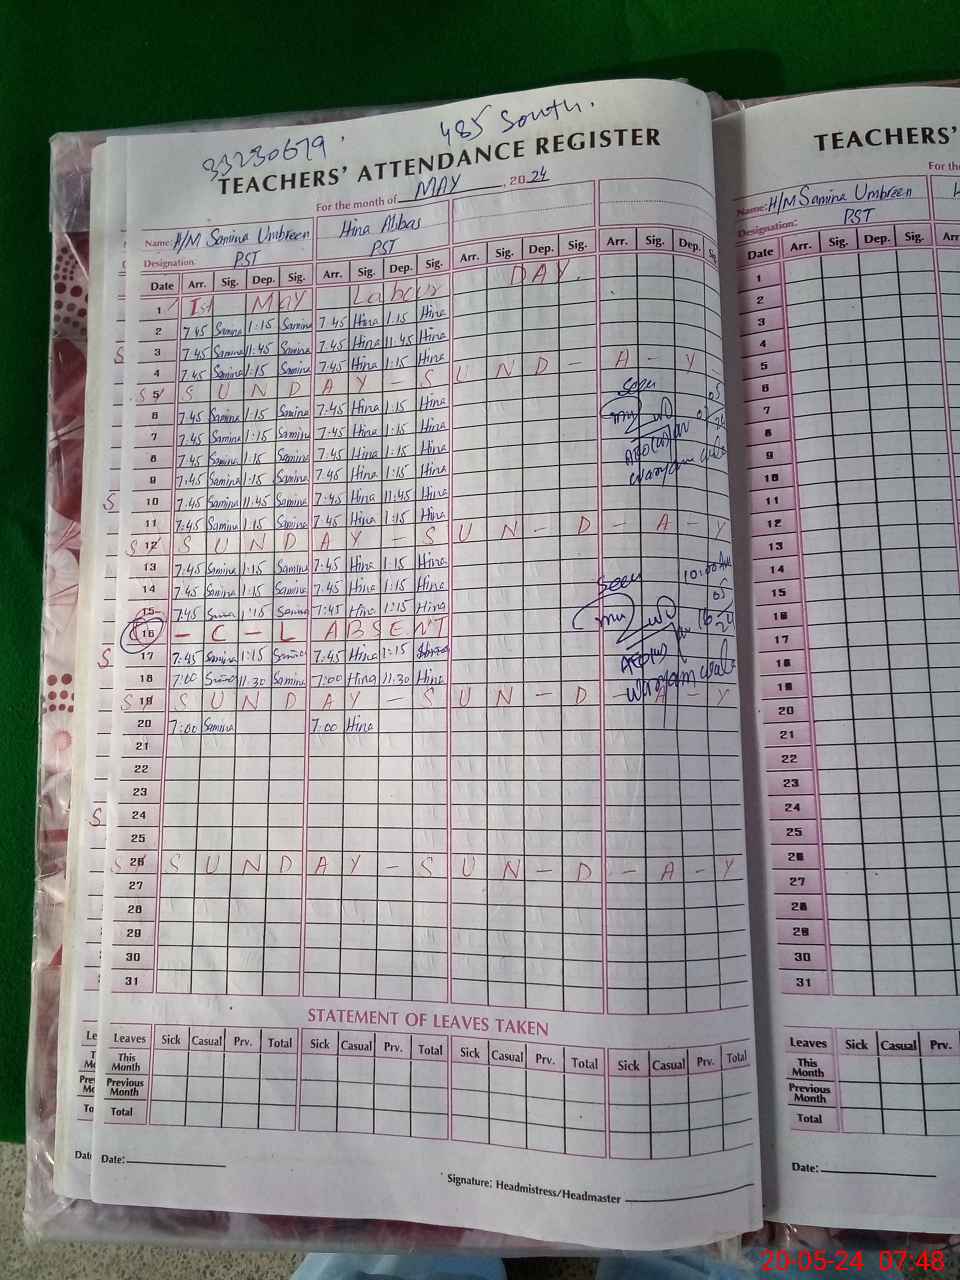 33230679.
485 South.
TEACHERS' ATTENDANCE REGISTER
For the month of MAY, 2024
Name: H/M Samina Umbreen Hina Abbas
Designation: PST PST
Date Arr. Sig. Dep. Sig. Arr. Sig. Dep. Sig. Arr. Sig. Dep. Sig. Arr. Sig. Dep. Sig.
1 1st May Labour DAY.
2 7:45 Samina 1:15 Samina 7:45 Hina 1:15 Hina
3 7:45 Samina 11:45 Samina 7:45 Hina 11:45 Hina
4 7:45 Samina 1:15 Samina 7:45 Hina 1:15 Hina
5 S U N D A Y - S U N D - A - Y
6 7:45 Samina 1:15 Samina 7:45 Hina 1:15 Hina Seen
7 7:45 Samina 1:15 Samina 7:45 Hina 1:15 Hina
8 7:45 Samina 1:15 Samina 7:45 Hina 1:15 Hina
9 7:45 Samina 1:15 Samina 7:45 Hina 1:15 Hina
10 7:45 Samina 11:45 Samina 7:45 Hina 11:45 Hina
11 7:45 Samina 1:15 Samina 7:45 Hina 1:15 Hina
12 S U N D A Y - S U N - D - A - Y
13 7:45 Samina 1:15 Samina 7:45 Hina 1:15 Hina
14 7:45 Samina 1:15 Samina 7:45 Hina 1:15 Hina Seen
15 7:45 Samina 1:15 Samina 7:45 Hina 1:15 Hina
16 - C - L A B S E N T
17 7:45 Samina 1:15 Samina 7:45 Hina 1:15
18 7:00 Samina 11:30 Samina 7:00 Hina 11:30 Hina
19 S U N D A Y - S U N - D - A - Y
20 7:00 Samina 7:00 Hina
21
22
23
24
25
26 S U N D A Y - S U N - D - A - Y
27
28
29
30
31
STATEMENT OF LEAVES TAKEN
Leaves Sick Casual Prv. Total Sick Casual Prv. Total Sick Casual Prv. Total Sick Casual Prv. Total
This Month
Previous Month
Total
Date:
Signature: Headmistress/Headmaster
TEACHERS'
For the
Name: H/M Samina Umbreen
Designation: PST
Date Arr. Sig. Dep. Sig.
1
2
3
4
5
6
7
8
9
10
11
12
13
14
15
16
17
18
19
20
21
22
23
24
25
26
27
28
29
30
31
Leaves Sick Casual Prv.
This Month
Previous Month
Total
Date:
20-05-24 07:48